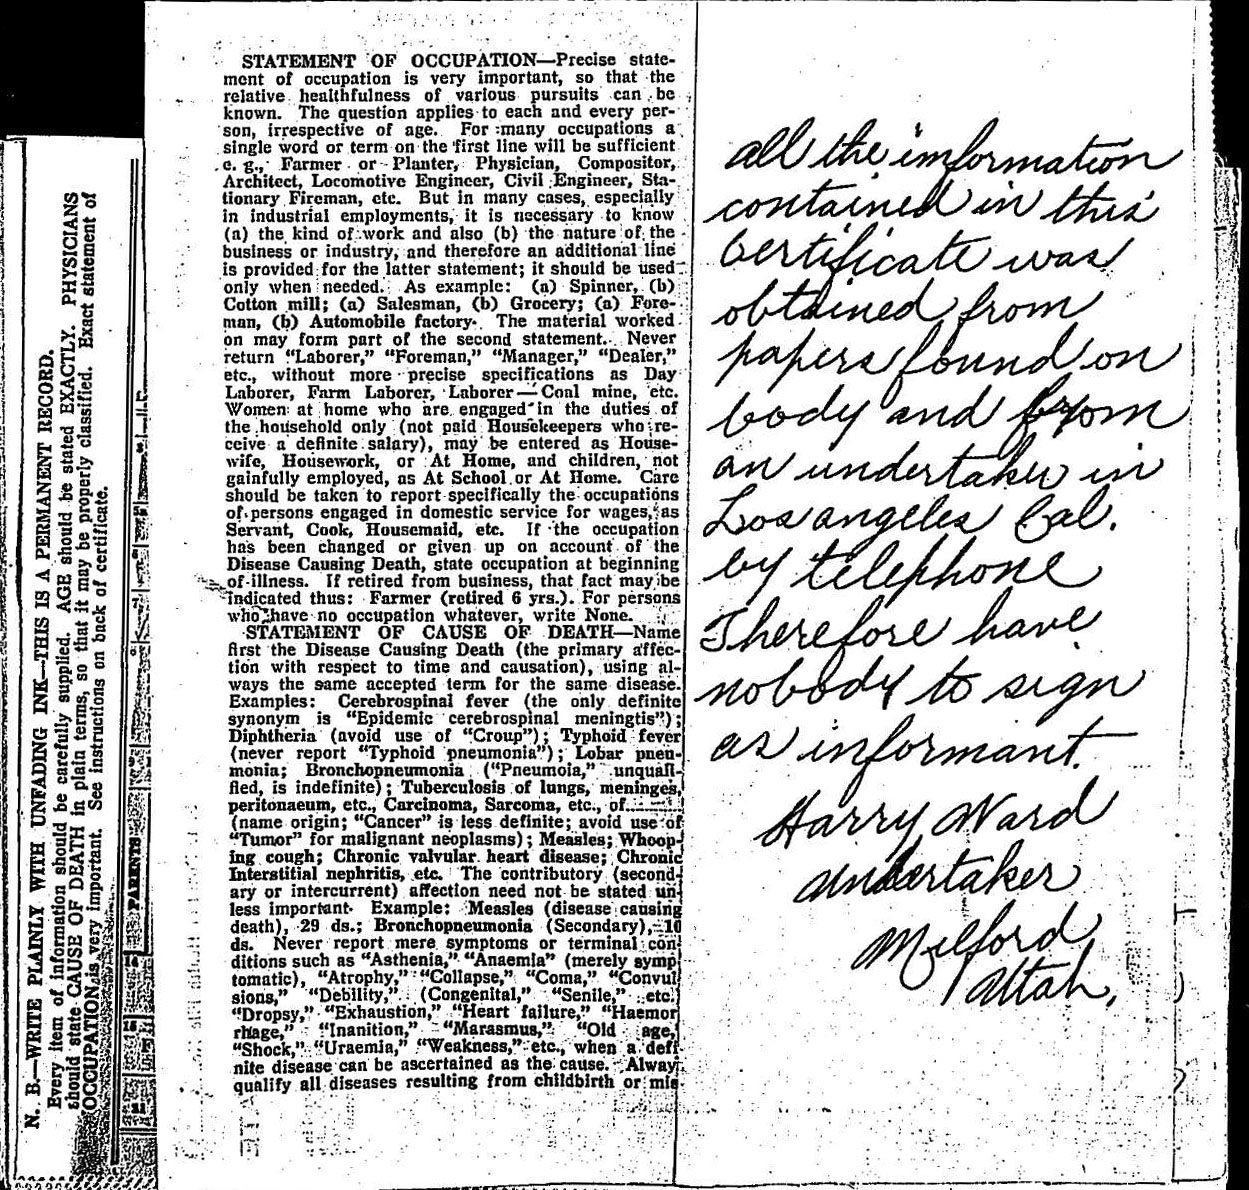 N. B.—WRITE PLAINLY WITH UNFADING INK—THIS IS A PERMANENT RECORD.
Every item of information should be carefully supplied. AGE should be stated EXACTLY. PHYSICIANS
should state CAUSE OF DEATH in plain terms, so that it may be properly classified. Exact statement of
OCCUPATION is very important. See instructions on back of certificate.
PARENTS
STATEMENT OF OCCUPATION—Precise state-
ment of occupation is very important, so that the
relative healthfulness of various pursuits can be
known. The question applies to each and every per-
son, irrespective of age. For many occupations a
single word or term on the first line will be sufficient
e. g., Farmer or Planter, Physician, Compositor,
Architect, Locomotive Engineer, Civil Engineer, Sta-
tionary Fireman, etc. But in many cases, especially
in industrial employments, it is necessary to know
(a) the kind of work and also (b) the nature of the
business or industry, and therefore an additional line
is provided for the latter statement; it should be used
only when needed. As example: (a) Spinner, (b)
Cotton mill; (a) Salesman, (b) Grocery; (a) Fore-
man, (b) Automobile factory. The material worked
on may form part of the second statement. Never
return “Laborer,” “Foreman,” “Manager,” “Dealer,”
etc., without more precise specifications as Day
Laborer, Farm Laborer, Laborer—Coal mine, etc.
Women at home who are engaged in the duties of
the household only (not paid Housekeepers who re-
ceive a definite salary), may be entered as House-
wife, Housework, or At Home, and children, not
gainfully employed, as At School or At Home. Care
should be taken to report specifically the occupations
of persons engaged in domestic service for wages, as
Servant, Cook, Housemaid, etc. If the occupation
has been changed or given up on account of the
Disease Causing Death, state occupation at beginning
of illness. If retired from business, that fact may be
indicated thus: Farmer (retired 6 yrs.). For persons
who have no occupation whatever, write None.
STATEMENT OF CAUSE OF DEATH—Name
first the Disease Causing Death (the primary affec-
tion with respect to time and causation), using al-
ways the same accepted term for the same disease.
Examples: Cerebrospinal fever (the only definite
synonym is “Epidemic cerebrospinal meningtis”);
Diphtheria (avoid use of “Croup”); Typhoid fever
(never report “Typhoid pneumonia”); Lobar pneu-
monia; Bronchopneumonia (“Pneumoia,” unquali-
fied, is indefinite); Tuberculosis of lungs, meninges,
peritonaeum, etc., Carcinoma, Sarcoma, etc., of......
(name origin; “Cancer” is less definite; avoid use of
“Tumor” for malignant neoplasms); Measles; Whoop-
ing cough; Chronic valvular heart disease; Chronic
Interstitial nephritis, etc. The contributory (second-
ary or intercurrent) affection need not be stated un-
less important. Example: Measles (disease causing
death), 29 ds.; Bronchopneumonia (Secondary), 10
ds. Never report mere symptoms or terminal con
ditions such as “Asthenia,” “Anaemia” (merely symp
tomatic), “Atrophy,” “Collapse,” “Coma,” “Convul
sions,” “Debility,” (Congenital,” “Senile,” etc.)
“Dropsy,” “Exhaustion,” “Heart failure,” “Haemor
rhage,” “Inanition,” “Marasmus,” “Old age,
“Shock,” “Uraemia,” “Weakness,” etc., when a defi
nite disease can be ascertained as the cause. Alway
qualify all diseases resulting from childbirth or mis
all the information
contained in this
Certificate was
obtained from
papers found on
body and from
an undertaker in
Los angeles Cal.
by telephone
Therefore have
nobody to sign
as informant.
Harry Ward
undertaker
Milford
Utah.